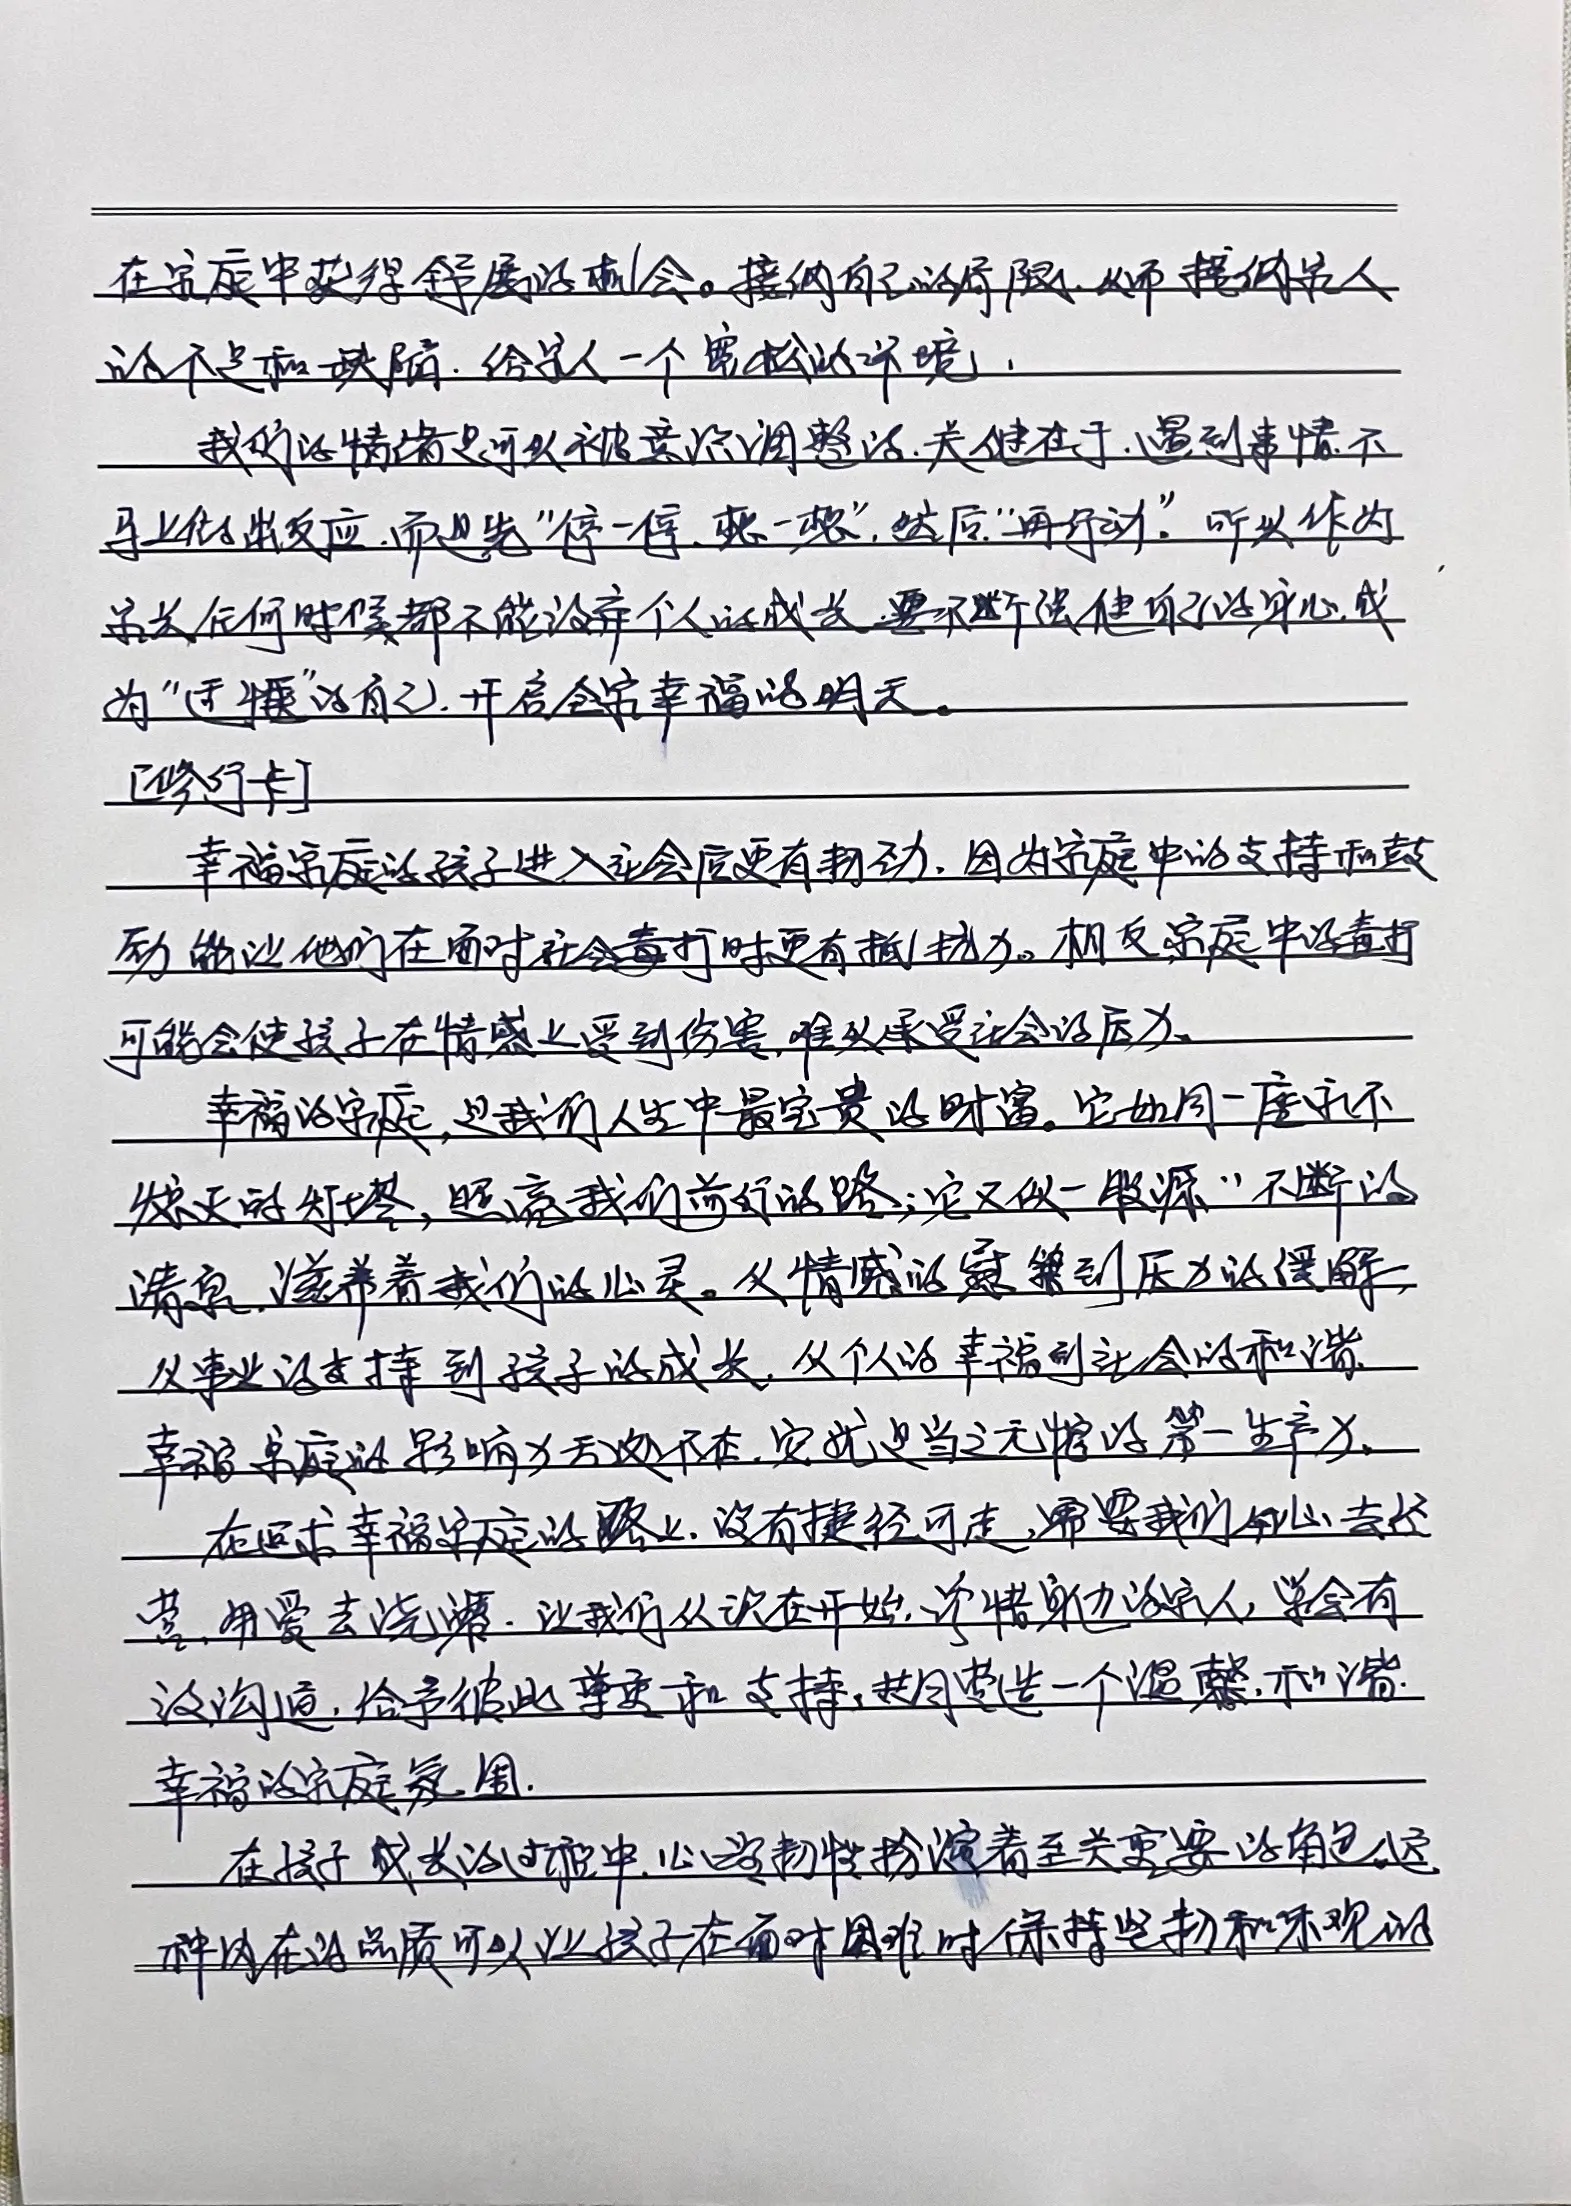 在家庭中获得舒展的机会。接纳自己的局限，从而接纳家人
的不足和缺陷，给家人一个宽松的环境，
我们的情绪是可以被意识调整的，关键在于，遇到事情不
马上做出反应，而是先“停一停，想一想”，然后“再行动”。所以作为
家长任何时候都不能放弃个人的成长，要不断强健自己的身心，成
为“可靠”的自己，开启全家幸福的明天。
[修行卡]
幸福家庭的孩子进入社会后更有韧劲，因为家庭中的支持和鼓
励能让他们在面对社会毒打时更有抵抗力。相反，家庭中的毒打
可能会使孩子在情感上受到伤害，难以承受社会的压力。
幸福的家庭，是我们人生中最宝贵的财富。它如同一座永不
熄灭的灯塔，照亮我们前行的路；它又似一股源源不断的
清泉，滋养着我们的心灵。从情感的慰藉到压力的缓解，
从事业的支持到孩子的成长，从个人的幸福到社会的和谐，
幸福家庭的影响力无处不在，它就是当之无愧的第一生产力。
在追求幸福家庭的路上，没有捷径可走，需要我们用心去经
营，用爱去浇灌。让我们从现在开始，珍惜身边的家人，学会有
效沟通，给予彼此尊重和支持，共同营造一个温馨、和谐、
幸福的家庭氛围。
在孩子成长的过程中，心理韧性扮演着至关重要的角色。这
种内在的品质可以让孩子在面对困难时保持坚韧和乐观的